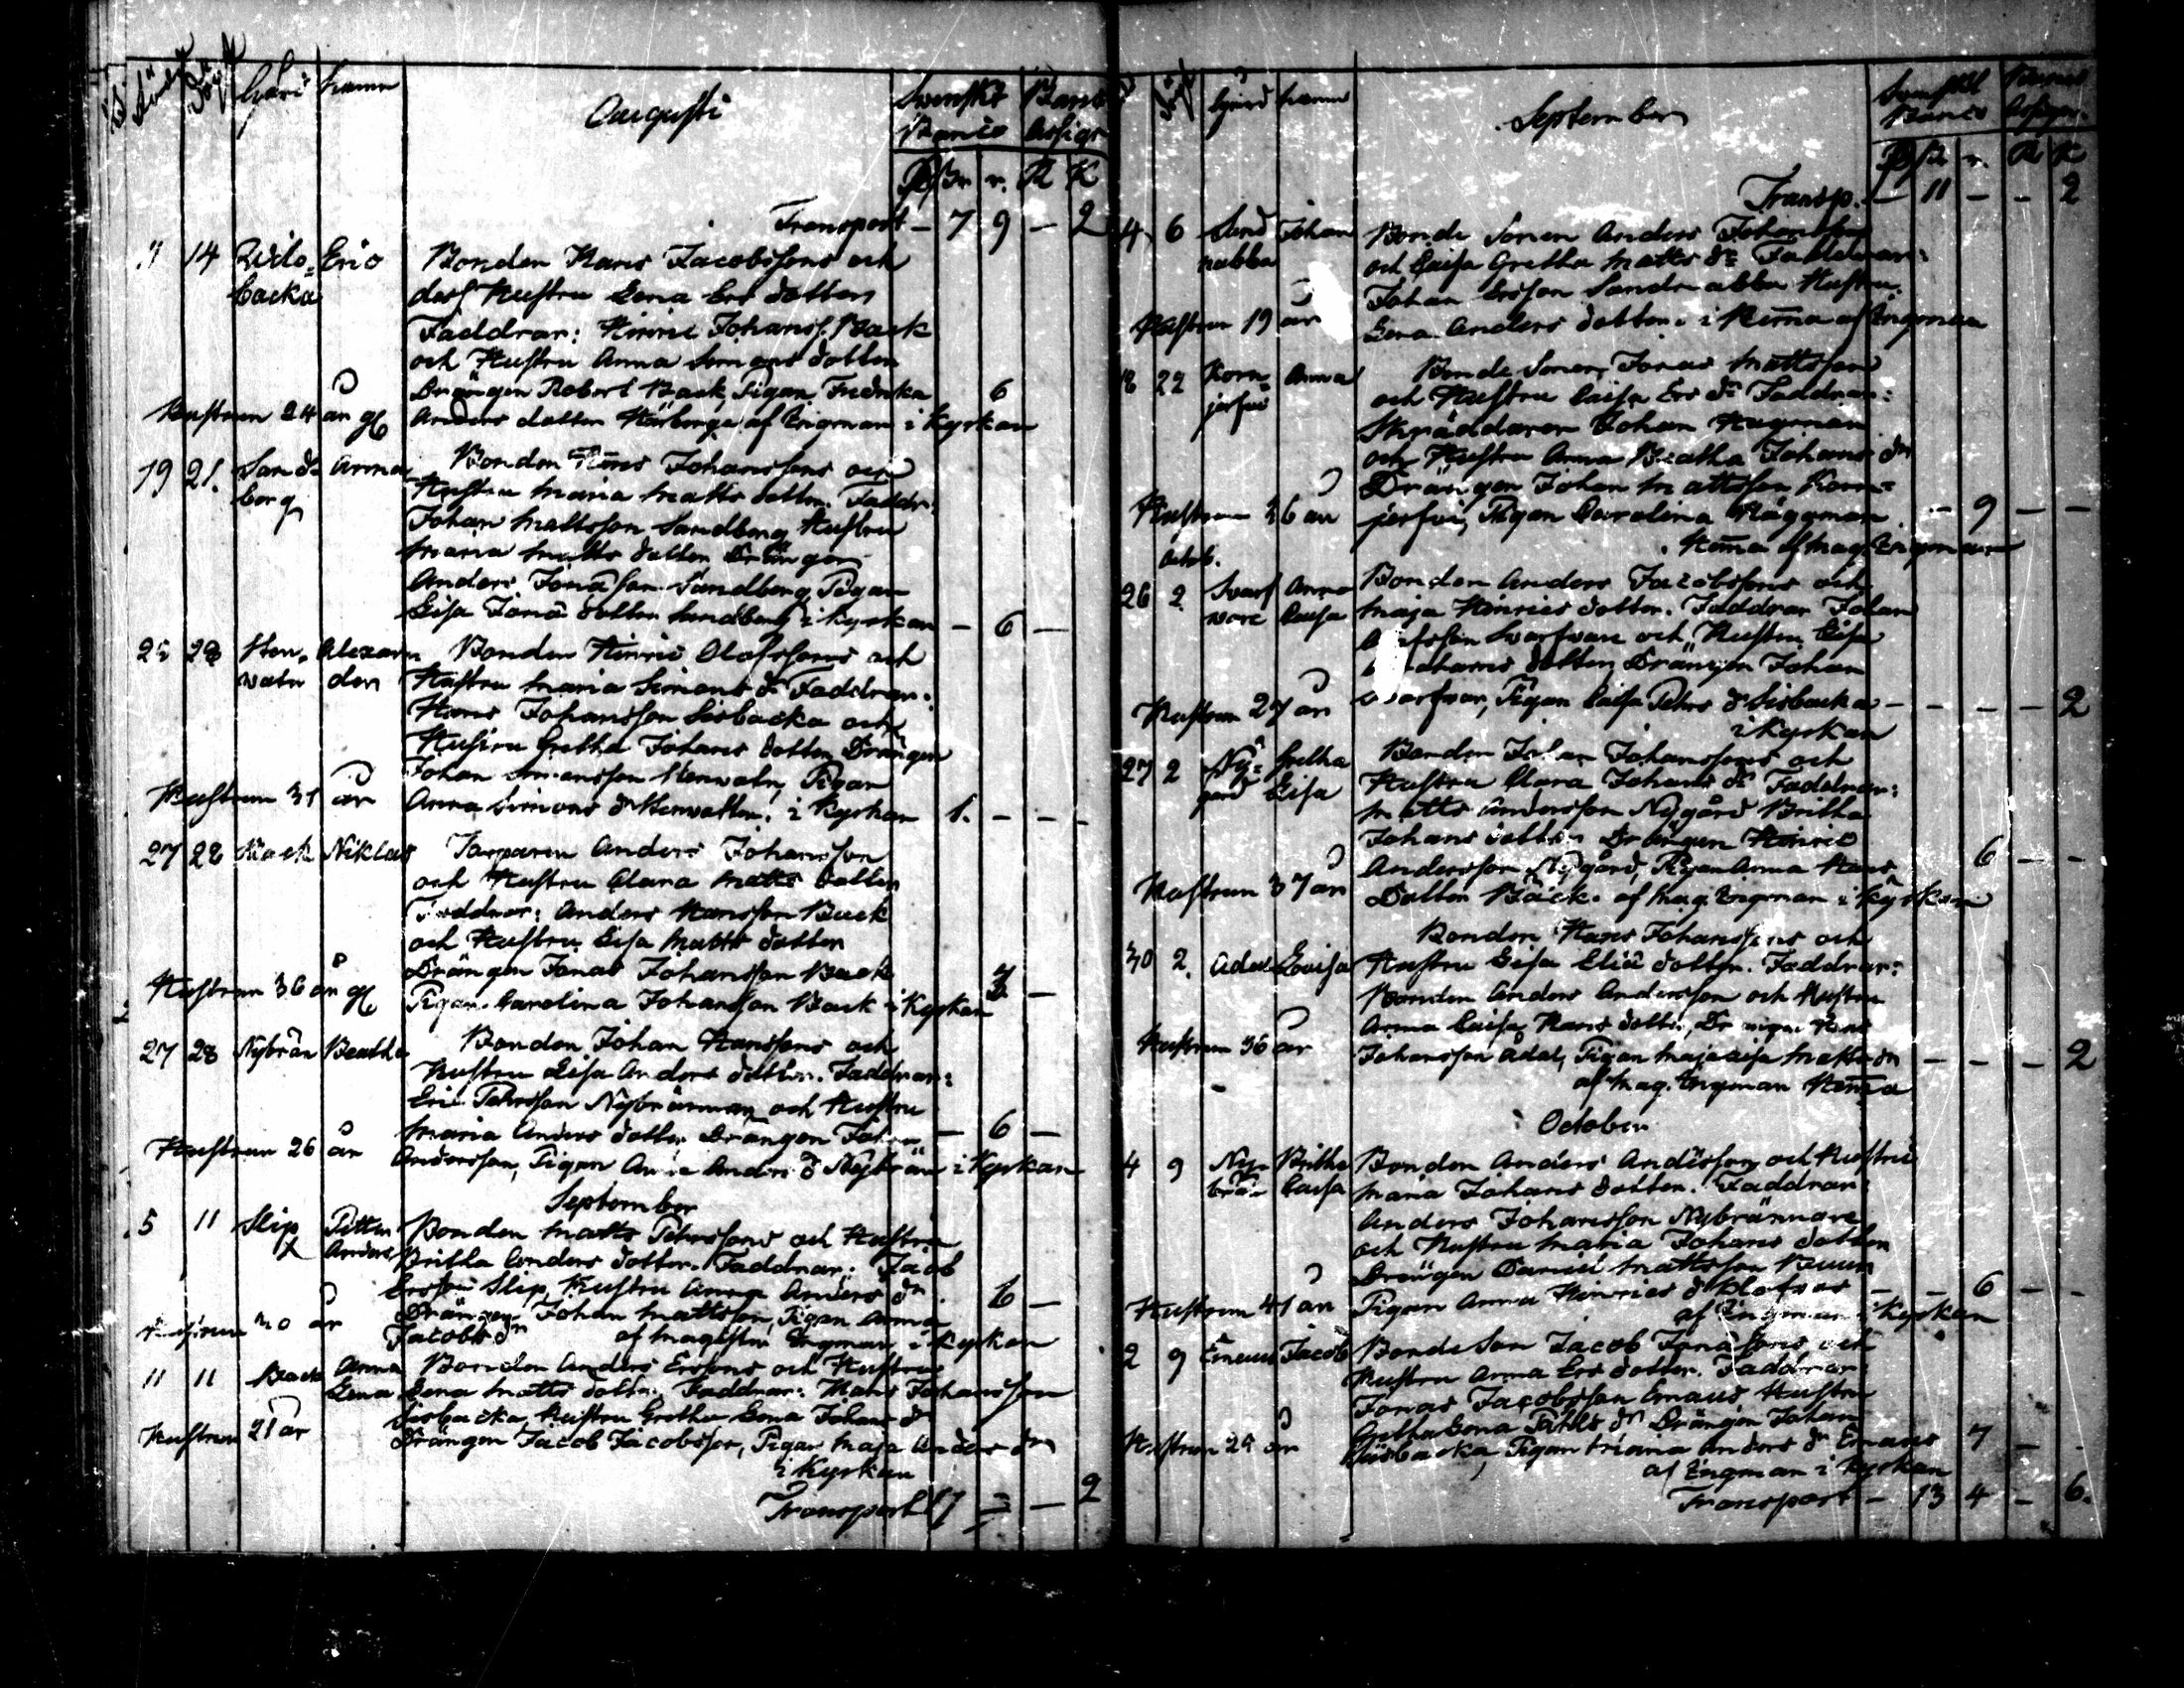 Gård Namn Augusti Svenskt Banco Banco Assign
R Sk r. R K
Transport - 7 9 - 2
11 14 Eric Bonden Hans Jacobssons och
backa dess Hustru Lena Ers dotter
Faddrar: Hinric Johanss. Back
och Hustru Anna Simons dotter
Drängen Robert Back, Pigan Fredrika 6
Hustrun 24 år gl Anders dotter af Engman i Kyrkan
19 21. Sand= Anna Bonden Hans Johanssons och
berg Hustru Maria Matts dotter. Faddr:
Johan Mattsson Sandberg Hustru
Maria Matts dotter Drängen
Anders Jonasson Sandberg Pigan
Lisa Jona dotter Sandberg i Kyrkan - 6 -
25 28 Sten= Alexan Bonden Hinric Olofssons och
der Hustru Maria Simons dr Faddrar:
Hans Johansson Lisbacka och
Hustru Gretha Johans dotter Drängen
Johan Simonsson Pigan
Hustrun 31 år Anna Simons dr i Kyrkan 1. - - -
27 28 Back Niklas Anders Johansson
och Hustru Clara Matts dotter
Faddrar: Anders Hansson Back
och Hustru Lisa Matts dotter
Drängen Jonas Johansson Back
Hustrun 36 år gl Pigan Carolina Johansson Back i Kyrkan -
27 28 Nybrän Beatha Bonden Johan Hanssons och
Hustru Lisa Anders dotter. Faddrar:
Eric Pehrsson Nybränman och Hustru
Maria Anders dotter Drängen Johan - 6 -
Hustrun 26 år Andersson, Pigan Anders d Nybrän i Kyrkan
September
5 11 Slip Petter Bonden Matts Pehrssons och Hustru
Anders Britha Anders dotter. Faddrar: Jacob
Ersson Slip, Hustru Anna Anders dr 6 -
Hustrun 30 år Drängen Johan Mattsson, Pigan Anna
Jacobs dr af Magister Engman i Kyrkan
11 11 Back Anna Bonden Anders Erssons och Hustru
Lena Lena Matts dotter. Faddrar: Hans Johansson
Lisbacka, Hustru Gretha Lena Johans dr
Hustrun 21 år Drängen Jacob Jacobsson, Pigan Maja Anders dr
i Kyrkan 2
Transport
Gård Namn September Svenskt Banco
R Sk r. R K
Transp. - 11 - - 2
4 6 Sand Johan Bonde Sonen Anders Johansson
nabba och Caisa Gretha Matts dr Faddrar:
Johan Ersson Sandnabba Hustru
Hustrun 19 år Lena Anders dotter. i Hema af Engman
18 22 Korn= Anna Bonde Sonen Jonas Mattsson
jerfvi och Hustru Caisa Ers dr Faddrar:
Skräddaren Johan Hagman
och Hustru Anna Beatha Johans dr
Drängen Johan Mattsson Korn=
Hustrun 26 år jerfvi, Pigan Carolina Häggman - 9 - -
Hema af Mag. Engman
octob.
26 2 Svarf Anna Bonden Anders Jacobssons och
vare Caisa Maja Hinrics dotter. Faddrar Johan
Svarfvare och Hustru Lisa
dotter, Drängen Johan
Hustrun 27 år Svarfvar, Pigan Caisa Pehrs dr Lisbacka - - - - 2
i Kyrkan
27 2 Ny= Gretha Bonden Johan Johanssons och
gård Lisa Hustru Clara Johans dr Faddrar:
Matts Andersson Nygård Britha
Johans dotter Drängen Hinric
Andersson Nygård, Pigan Anna Hans 6 - -
Hustrun 37 år Dotter Bäck. af Mag. Engman i Kyrkan
Bonden Hans Johanssons och
30 2. Adal Lovisa Hustru Lisa Elia dotter. Faddrar:
Bonden Anders Andersson och Hustru
Anna Caisa Hans dotter, Drängen
Hustrun 36 år Johansson Adal, Pigan Maja Caisa Matts dr - - - 2
af Mag. Engman Hema
October
4 9 Ny= Britha Bonden Anders Andersson och Hustru
brän Caisa Maria Johans dotter. Faddrar:
Anders Johansson Nybrännare
och Hustru Maria Johans dotter
Drängen Daniel Mattsson
Hustrun 41 år Pigan Anna Hinrics dr - - 6 - -
af Engman i Kyrkan
2 9 Emaus Jacob Bonde Son Jacob Jonassons och
Hustru Anna Ers dotter. Faddrar:
Jonas Jacobsson Emaus Hustru
Gretha Lena dr Drängen Johan
Hustrun 24 år Lisbacka, Pigan Anders dr Emaus 7 - -
af Engman i Kyrkan
Transport - 13 4 - 6.